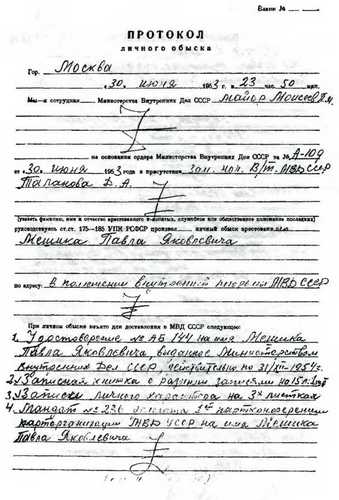 Бланк №
ПРОТОКОЛ
личного обыска
Гор. Москва
30 июня 1953 г. в 23 час. 50 мин.
Мы сотрудник Министерства Внутренних Дел СССР майор Моисеев
на основании ордера Министерства Внутренних Дел СССР за № А-109
от 30 июня 1953 года в присутствии Зам. нач. В/т. МВД СССР
Таланова Д. А.
(указать фамилию, имя и отчество арестованного и понятых, служебное или общественное положение последних)
руководствуясь ст.ст. 175–185 УПК РСФСР произвел личный обыск арестованного
Мешика Павла Яковлевича
по адресу: В помещении внутренней тюрьмы МВД СССР
При личном обыске взято для доставления в МВД СССР следующее:
1. Удостоверение № АБ 144 на имя Мешика
Павла Яковлевича, выданное Министерством
Внутренних Дел СССР, действительно по 31/XII-1954 г.
2. Записная книжка с разными записями на 15
3. Записки личного характера на 3х листках
4. Мандат № 236 делегата 1ой партконференции
парторганизации МВД УССР на имя Мешика
Павла Яковлевича